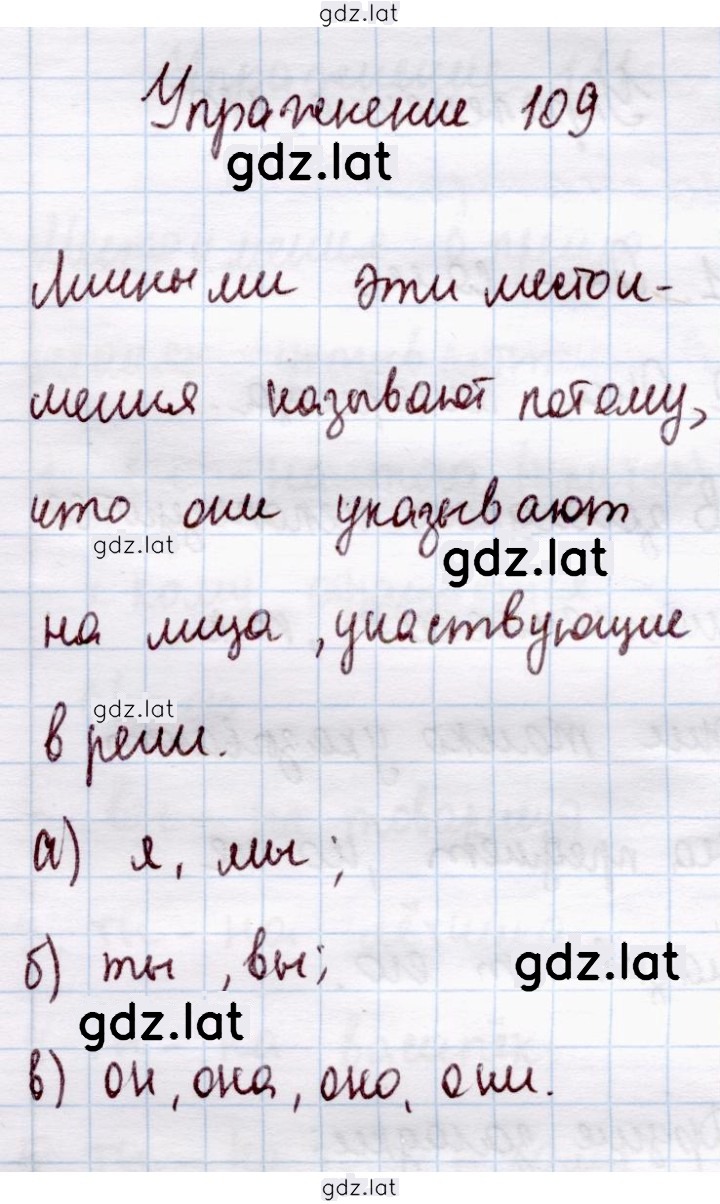 gdz.lat
Упражнение 109
gdz.lat
Личными эти местои-
мения называют потому,
что они указывают
gdz.lat
gdz.lat
на лица, участвующие
gdz.lat
в речи.
а) я, мы;
б) ты, вы;
gdz.lat
gdz.lat
в) он, она, оно, они.
gdz.lat